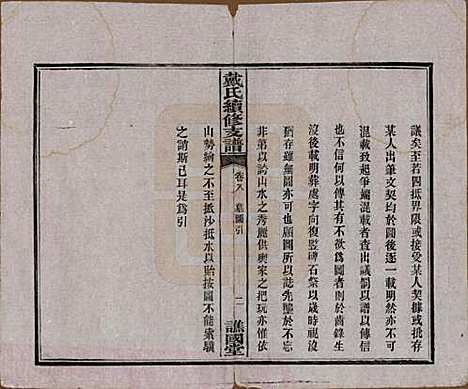 議矣至若四抵界限或接受某人契據或
某人出筆文契均於圖後逐一載明然亦不可
混載致起爭端混載者查出議罰以譜係傳信
也不信何以傳其有不欲爲圖者則於齒錄生
沒後載明葬處字向復豎碑石祭以歲時視
猶存雖無圖亦可也顧圖所以誌先塋於不忘
非第以論山水之秀麗供輿家之把玩亦惟依
山勢繪之不至抵砂抵水以貽按圖不能索驥
之誚斯已耳是爲引
戴氏續修支譜
卷八
墓圖引
二
譙國堂